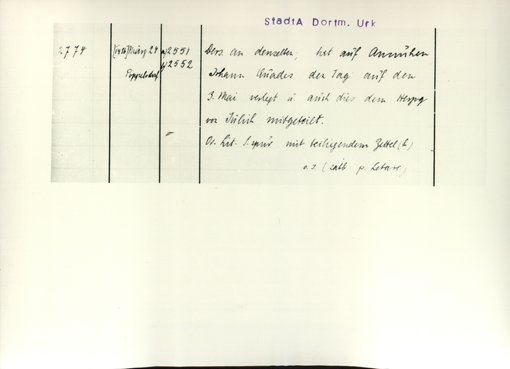 StadtA Dortm. Urk
2774
März 24
Poppelsdorf
a) 2551
b) 2552
Ders an denselben; hat auf Ansuchen
Johann Quades den Tag auf den
3. Mai verlegt u auch dies dem Herzog
von Jülich mitgeteilt.
Or. Lit. S. spur mit beiliegendem Zettel (b)
o. J. (sabb p. Letare)